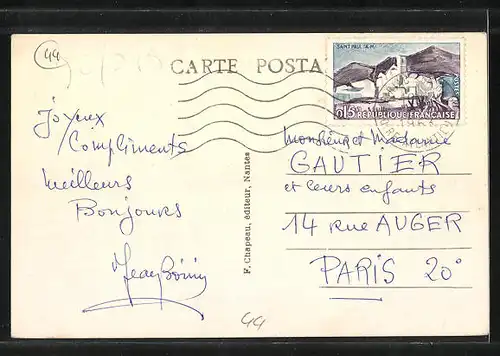 44
CARTE POSTA
SAINT-PAUL (A.M.)
0,15
POSTES
RÉPUBLIQUE FRANÇAISE
Joyeux
Compliments
Meilleurs
Bonjours
F. Chapeau, éditeur, Nantes
Monsieur et Madame
GAUTIER
et leurs enfants
14 rue AUGER
PARIS 20°
44